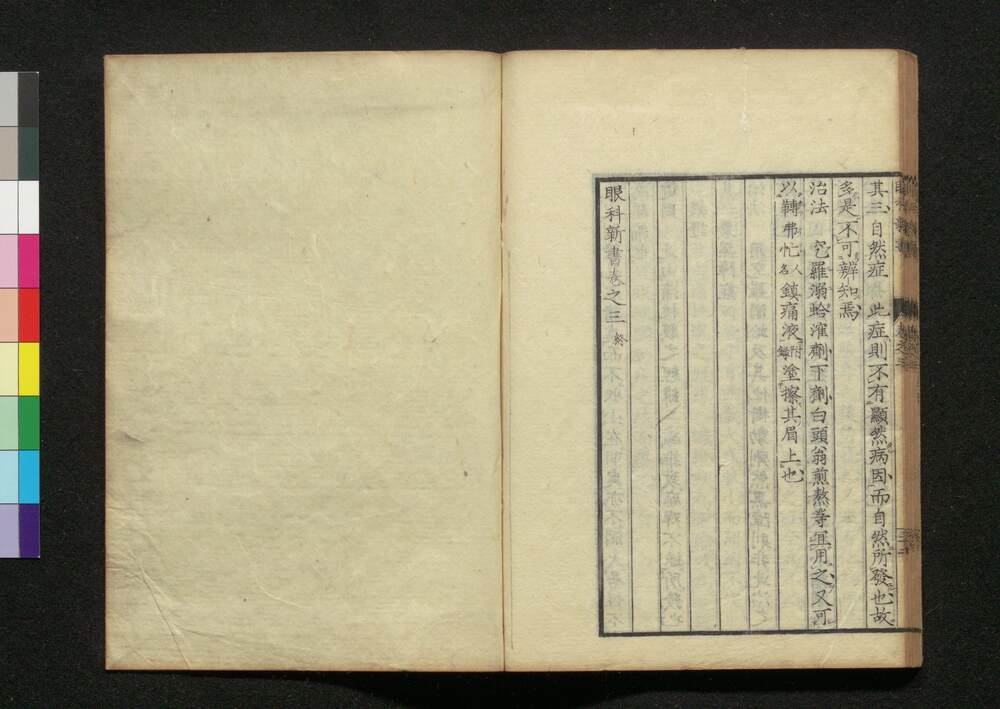 其三 自然症 此症則不有顯然病因而自然所發也故
多是不可辨知焉
治法 芤羅溺蛤灌劑下劑白頭翁煎熬等宜用之又可
以轉弗忙人名鎮痛液附錄塗擦其眉上也
眼科新書卷之三終